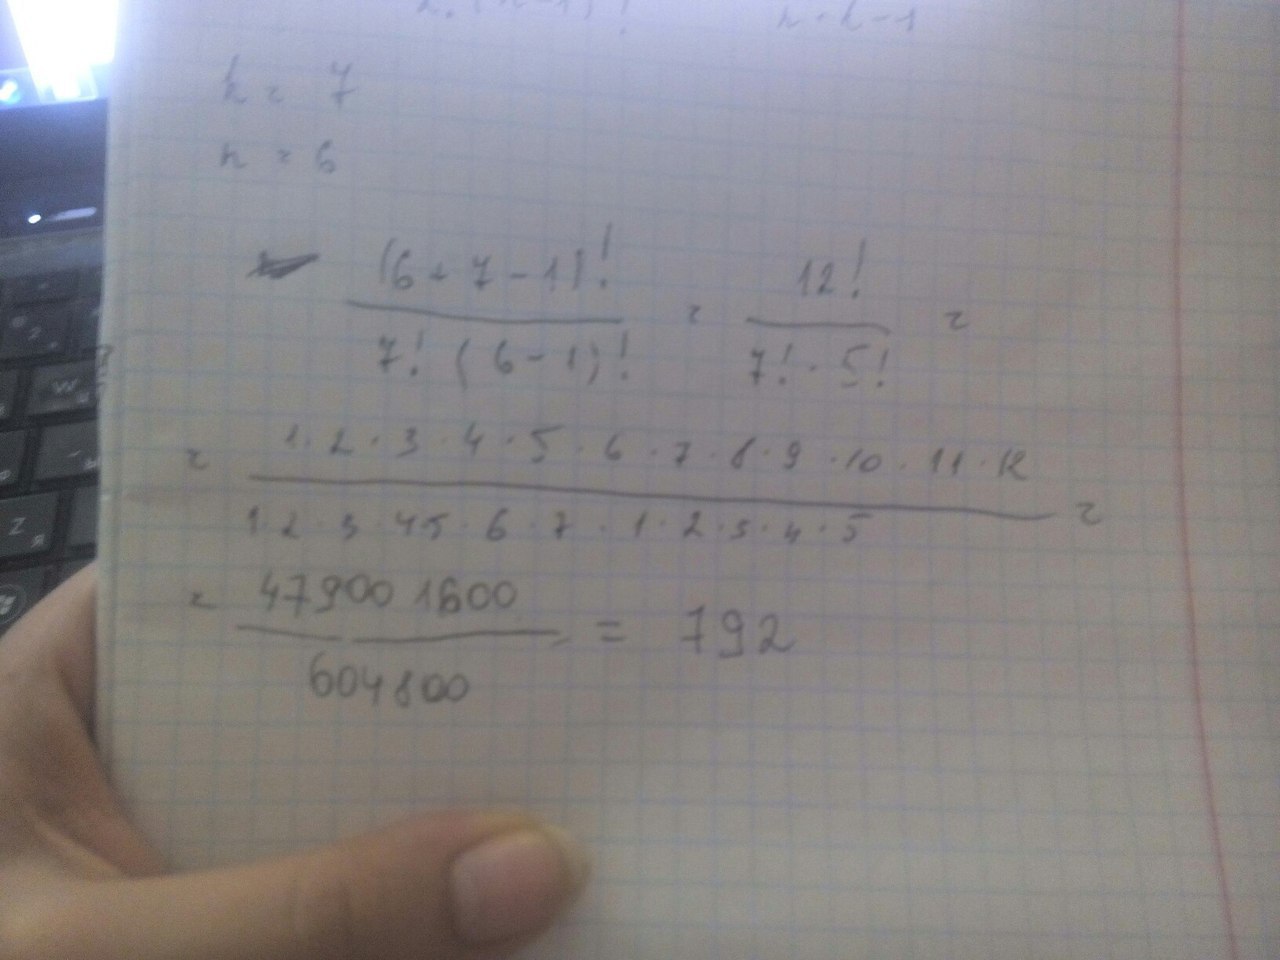 k = 7
n = 6
(6+7-1)! / 7!(6-1)! = 12! / 7!·5! =
= 1·2·3·4·5·6·7·8·9·10·11·12 / 1·2·3·4·5·6·7·1·2·3·4·5 =
= 479001600 / 604800 = 792